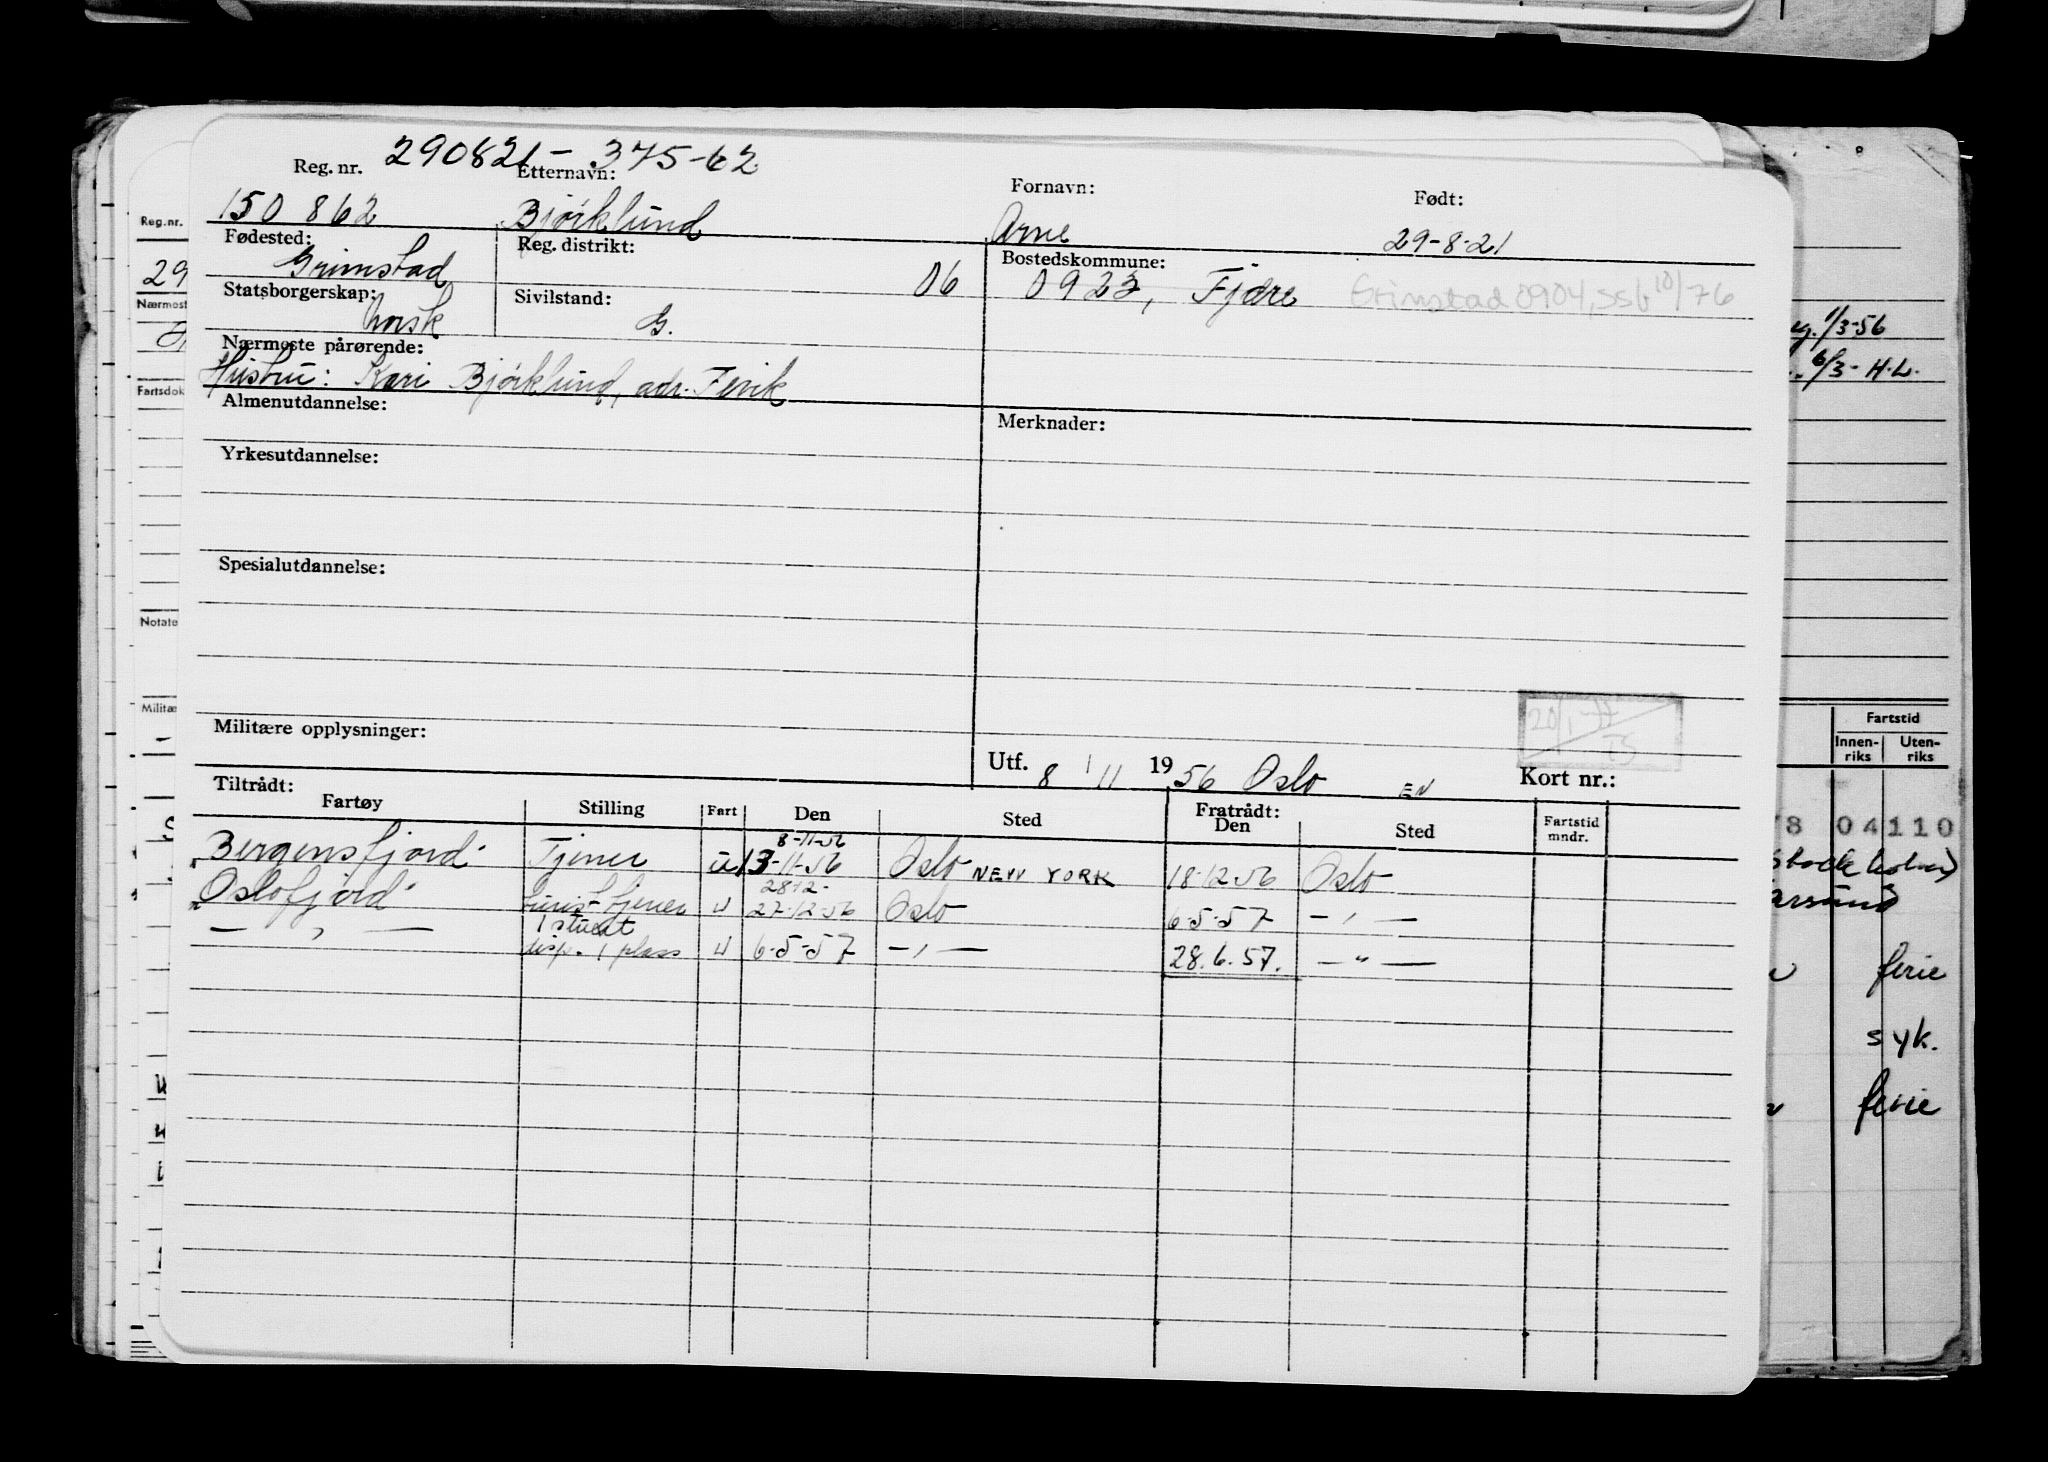 290821 - 375-62
Reg. nr. Etternavn: Fornavn: Født:
150 862 Bjørklund Arne 29-8-21
Fødested: Reg. distrikt: Bostedskommune:
Grimstad 06 0923, Fjære Grimstad 0904, SSb 10/76
Statsborgerskap: Sivilstand:
norsk G.
Nærmeste pårørende:
Hustru: Kari Bjørklund, adr. Fevik
Almenutdannelse: Merknader:
Yrkesutdannelse:
Spesialutdannelse:
Militære opplysninger:
Utf. 8 / 11 1956 Oslo EN Kort nr.:
Tiltrådt: Fratrådt:
Fartøy Stilling Fart Den Sted Den Sted Fartstid mndr.
8-11-56
Bergensfjord Tjener u 13-11-56 Oslo NEW YORK 18-12-56 Oslo
28-12-
Oslofjord turist tjener u 27-12-56 Oslo 6-5-57 — " —
1 stuert
— " — disp. 1 plass u 6-5-57 — " — 28.6.57. — " —
Reg.nr.
29
Nærmost
Fartsdok
Notate
Militæ
1/3-56
6/3- H.L.
Fartstid
Innen-riks Uten-riks
8 04110
ferie
syk.
ferie